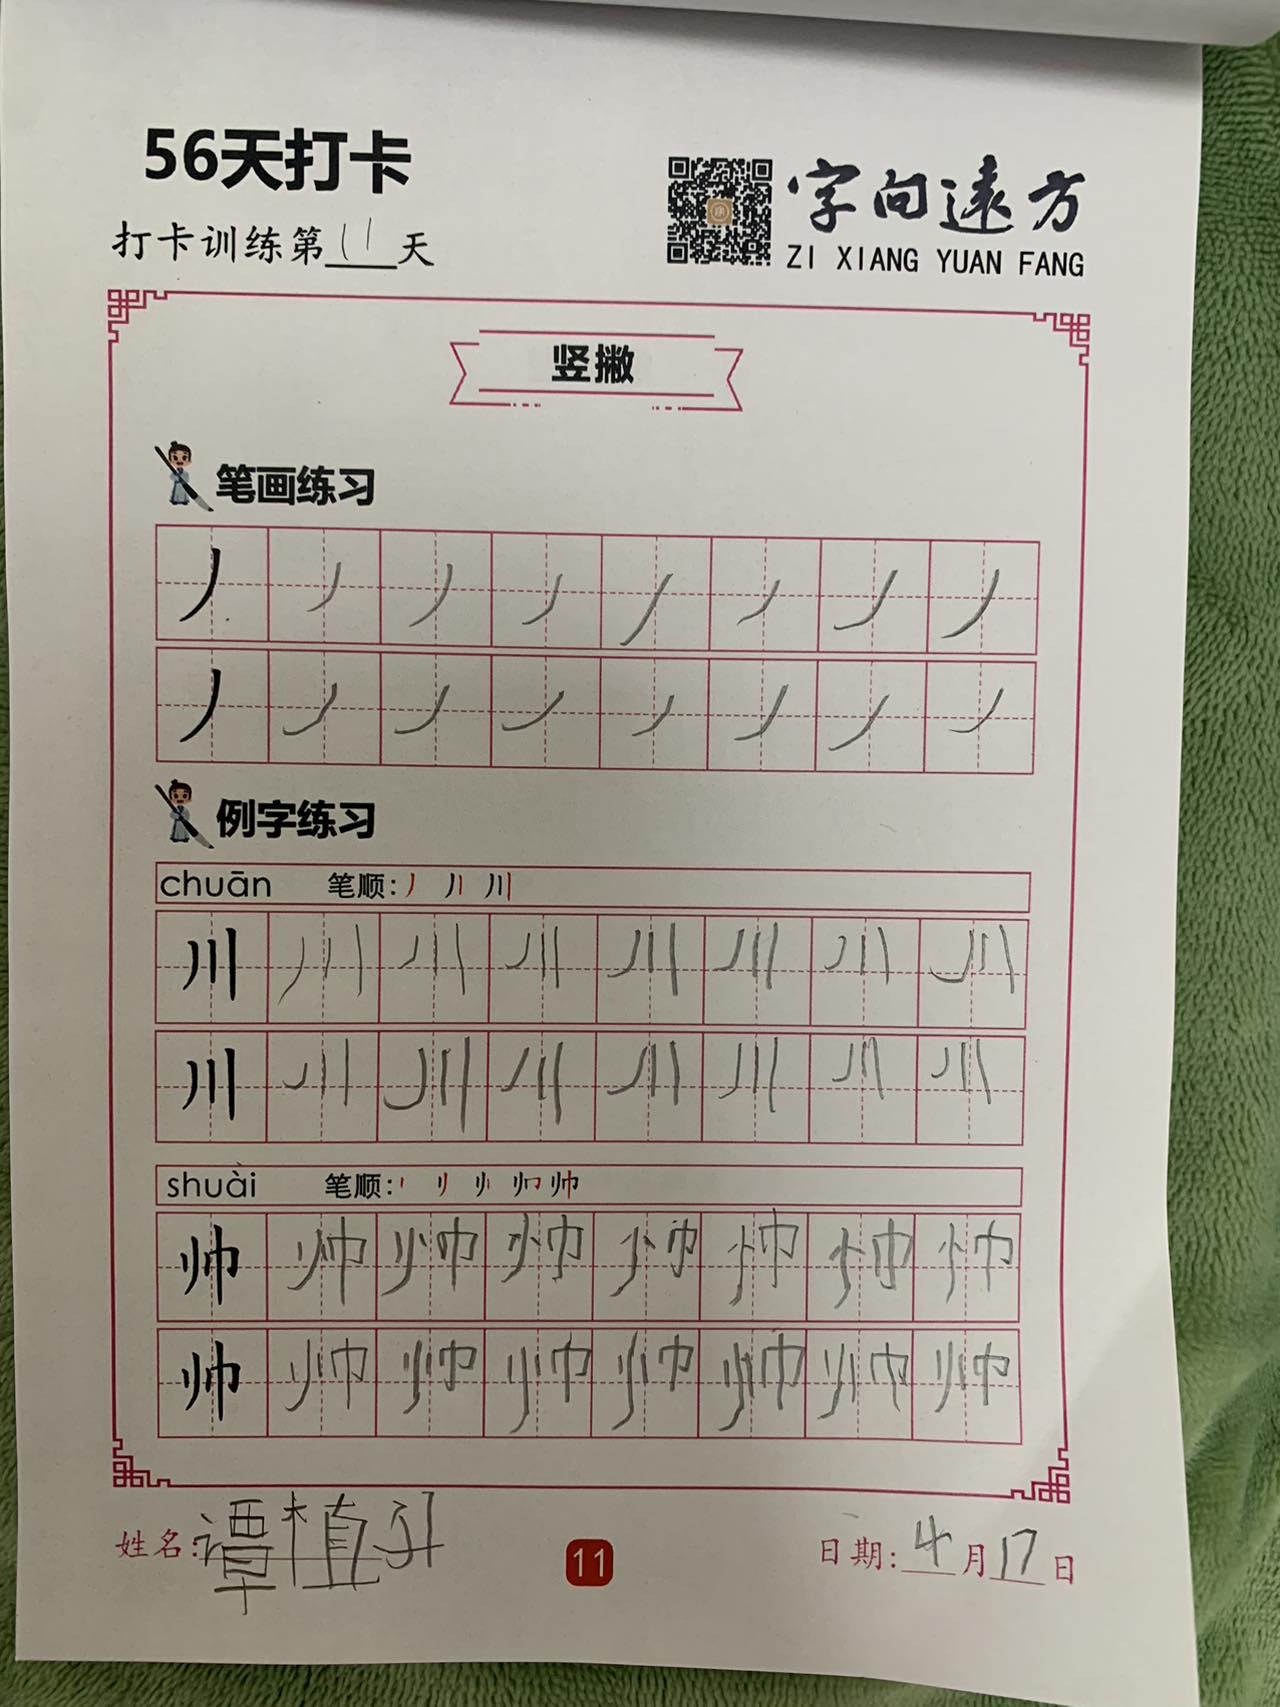 56天打卡
打卡训练第11天
字向遠方
ZI XIANG YUAN FANG
竖撇
笔画练习
丿 丿 丿 丿 丿 丿 丿 丿
丿 丿 丿 丿 丿 丿 丿 丿
例字练习
chuān 笔顺: 丿 川
川 川 川 川 川 川 川 川
川 川 川 川 川 川 川 川
shuài 笔顺: 帅
帅 帅 帅 帅 帅 帅 帅 帅
帅 帅 帅 帅 帅 帅 帅 帅
姓名: 谭植
11
日期: 4月17日